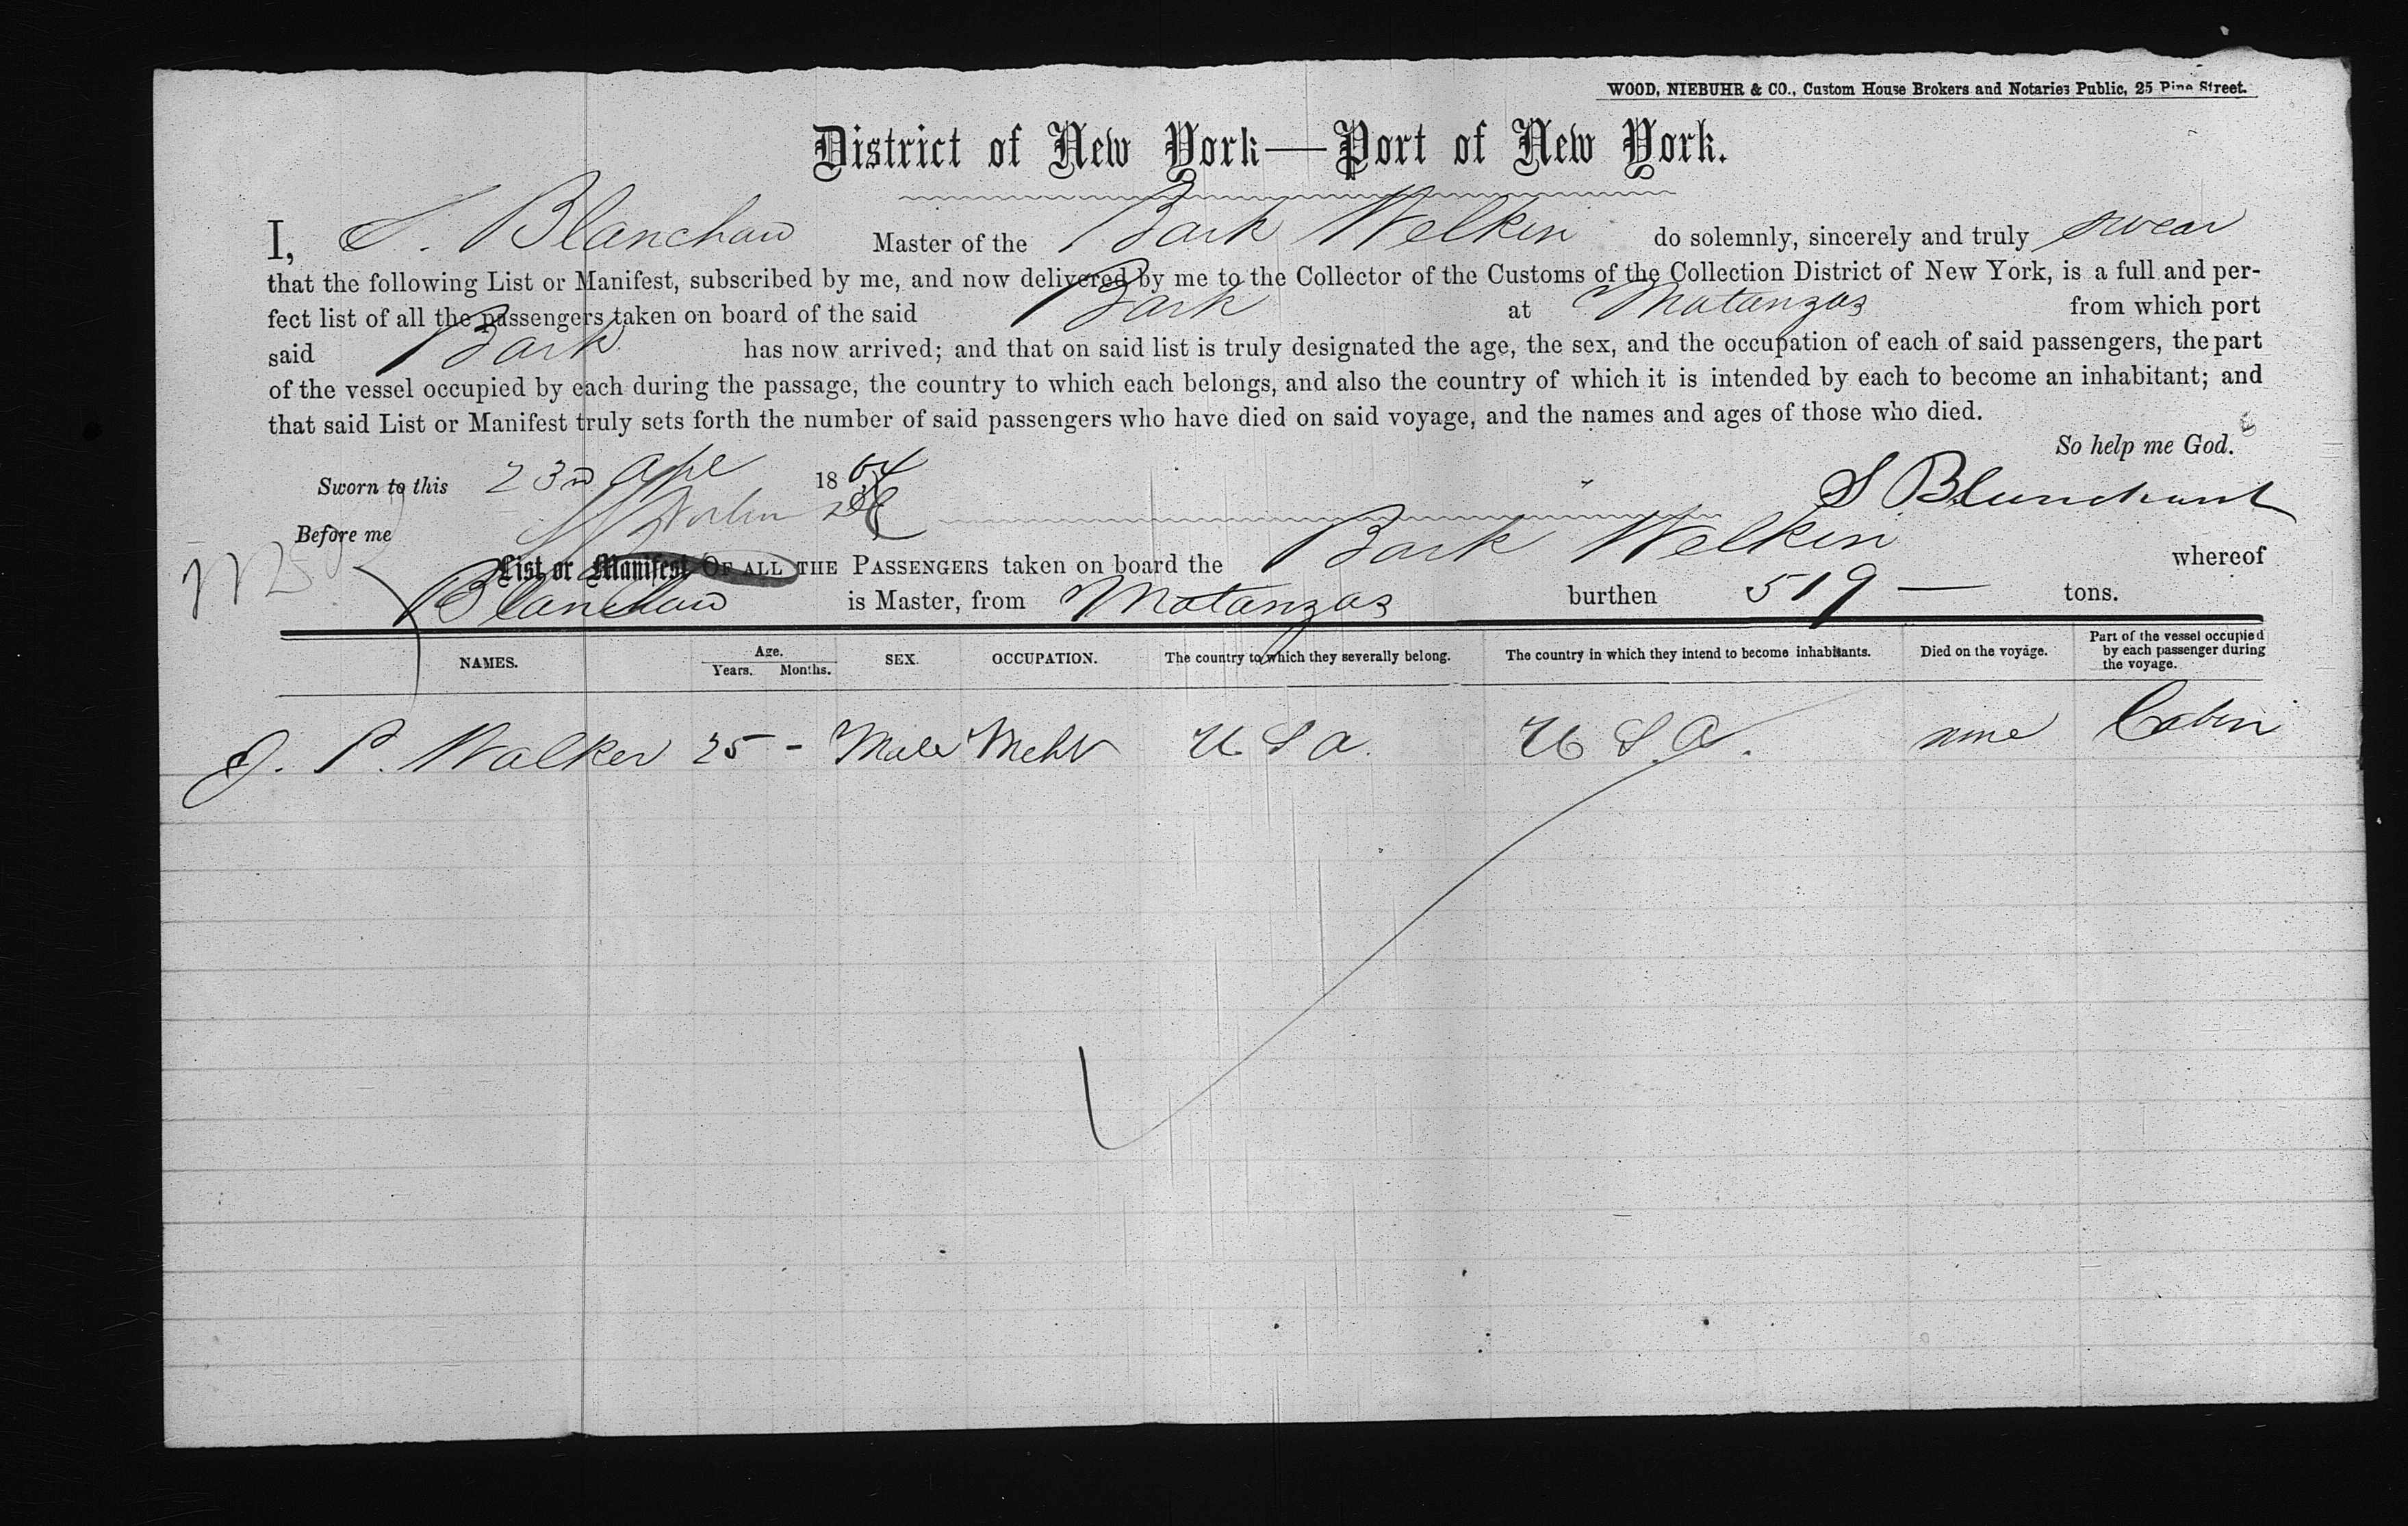 WOOD, NIEBUHR & CO., Custom House Brokers and Notaries Public, 25 Pine Street.
District of New York—Port of New York.
I, S. Blanchard Master of the Bark Welkin do solemnly, sincerely and truly swear
that the following List or Manifest, subscribed by me, and now delivered by me to the Collector of the Customs of the Collection District of New York, is a full and per-
fect list of all the passengers taken on board of the said Bark at Matanzas from which port
said Bark has now arrived; and that on said list is truly designated the age, the sex, and the occupation of each of said passengers, the part
of the vessel occupied by each during the passage, the country to which each belongs, and also the country of which it is intended by each to become an inhabitant; and
that said List or Manifest truly sets forth the number of said passengers who have died on said voyage, and the names and ages of those who died.
So help me God.
Sworn to this 23rd Apl 1864
S Blanchard
Before me
List or Manifest OF ALL THE PASSENGERS taken on board the Bark Welkin whereof
Blanchard is Master, from Matanzas burthen 519 — tons.
NAMES. Age. Years. Months. SEX. OCCUPATION. The country to which they severally belong. The country in which they intend to become inhabitants. Died on the voyage. Part of the vessel occupied by each passenger during the voyage.
J. P. Walker 25 - Male Mcht U S A. U S A. none Cabin